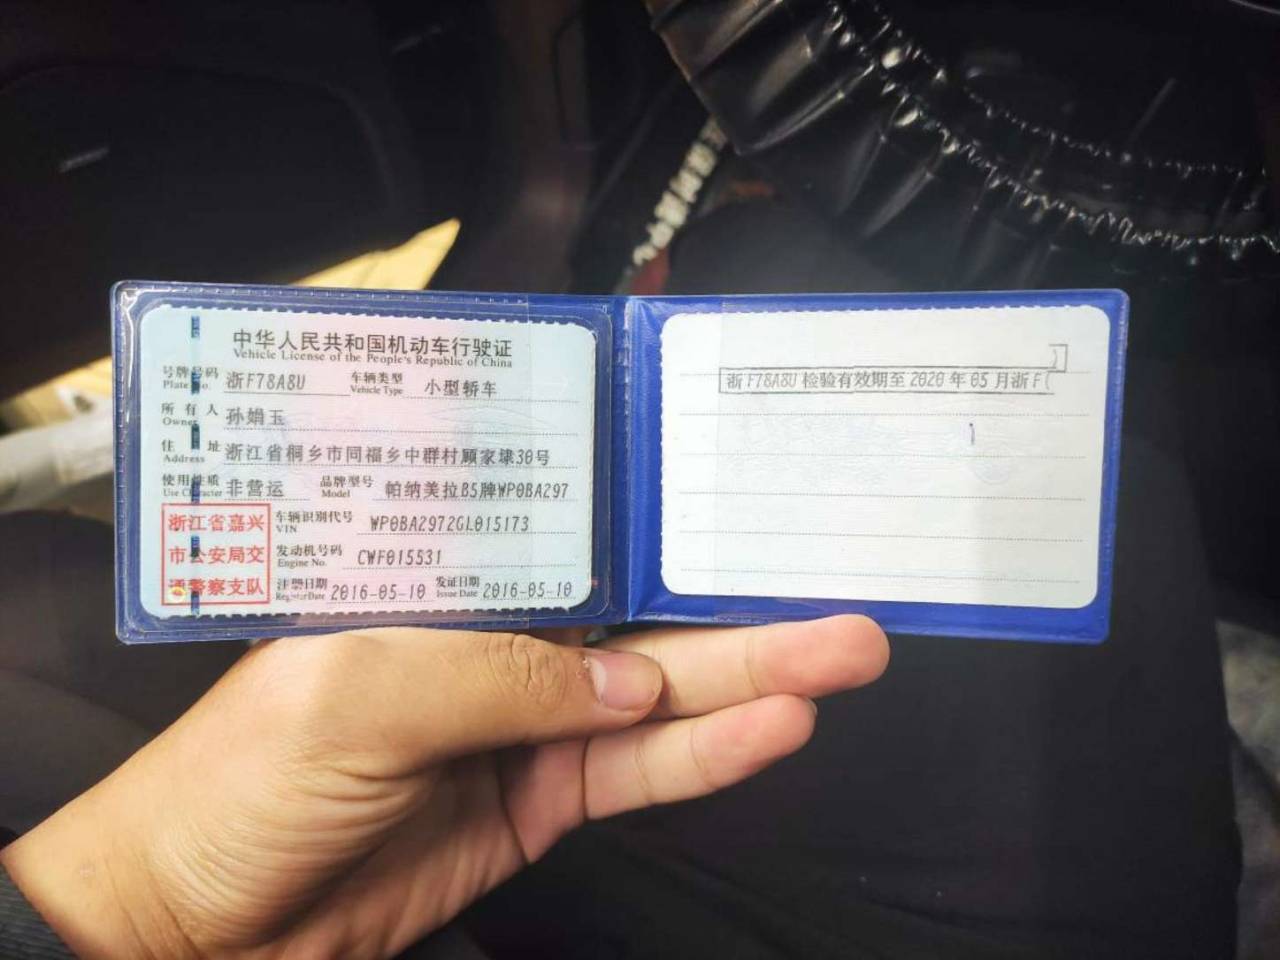 中华人民共和国机动车行驶证
Vehicle License of the People's Republic of China
号牌号码 Plate No. 浙F78A8U 车辆类型 Vehicle Type 小型轿车
所有人 Owner 孙娟玉
住址 Address 浙江省桐乡市同福乡中群村顾家埭30号
使用性质 Use Character 非营运 品牌型号 Model 帕纳美拉B5牌WP0BA297
车辆识别代号 VIN WP0BA2972GL015173
发动机号码 Engine No. CWF015531
注册日期 Register Date 2016-05-10 发证日期 Issue Date 2016-05-10
浙江省嘉兴
市公安局交
通警察支队
浙F78A8U 检验有效期至 2020 年 05 月浙F(